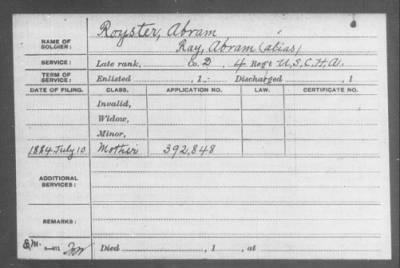 NAME OF SOLDIER: Royster, Abram
Ray, Abram (alias)
SERVICE: Late rank, Co. D, 4 Reg't U.S.C.H.A.
TERM OF SERVICE: Enlisted , 1 . Discharged , 1
DATE OF FILING. CLASS. APPLICATION NO. LAW. CERTIFICATE NO.
Invalid,
Widow,
Minor,
1884 July 10 Mother 392,848
ADDITIONAL SERVICES:
REMARKS:
Died , 1 , at